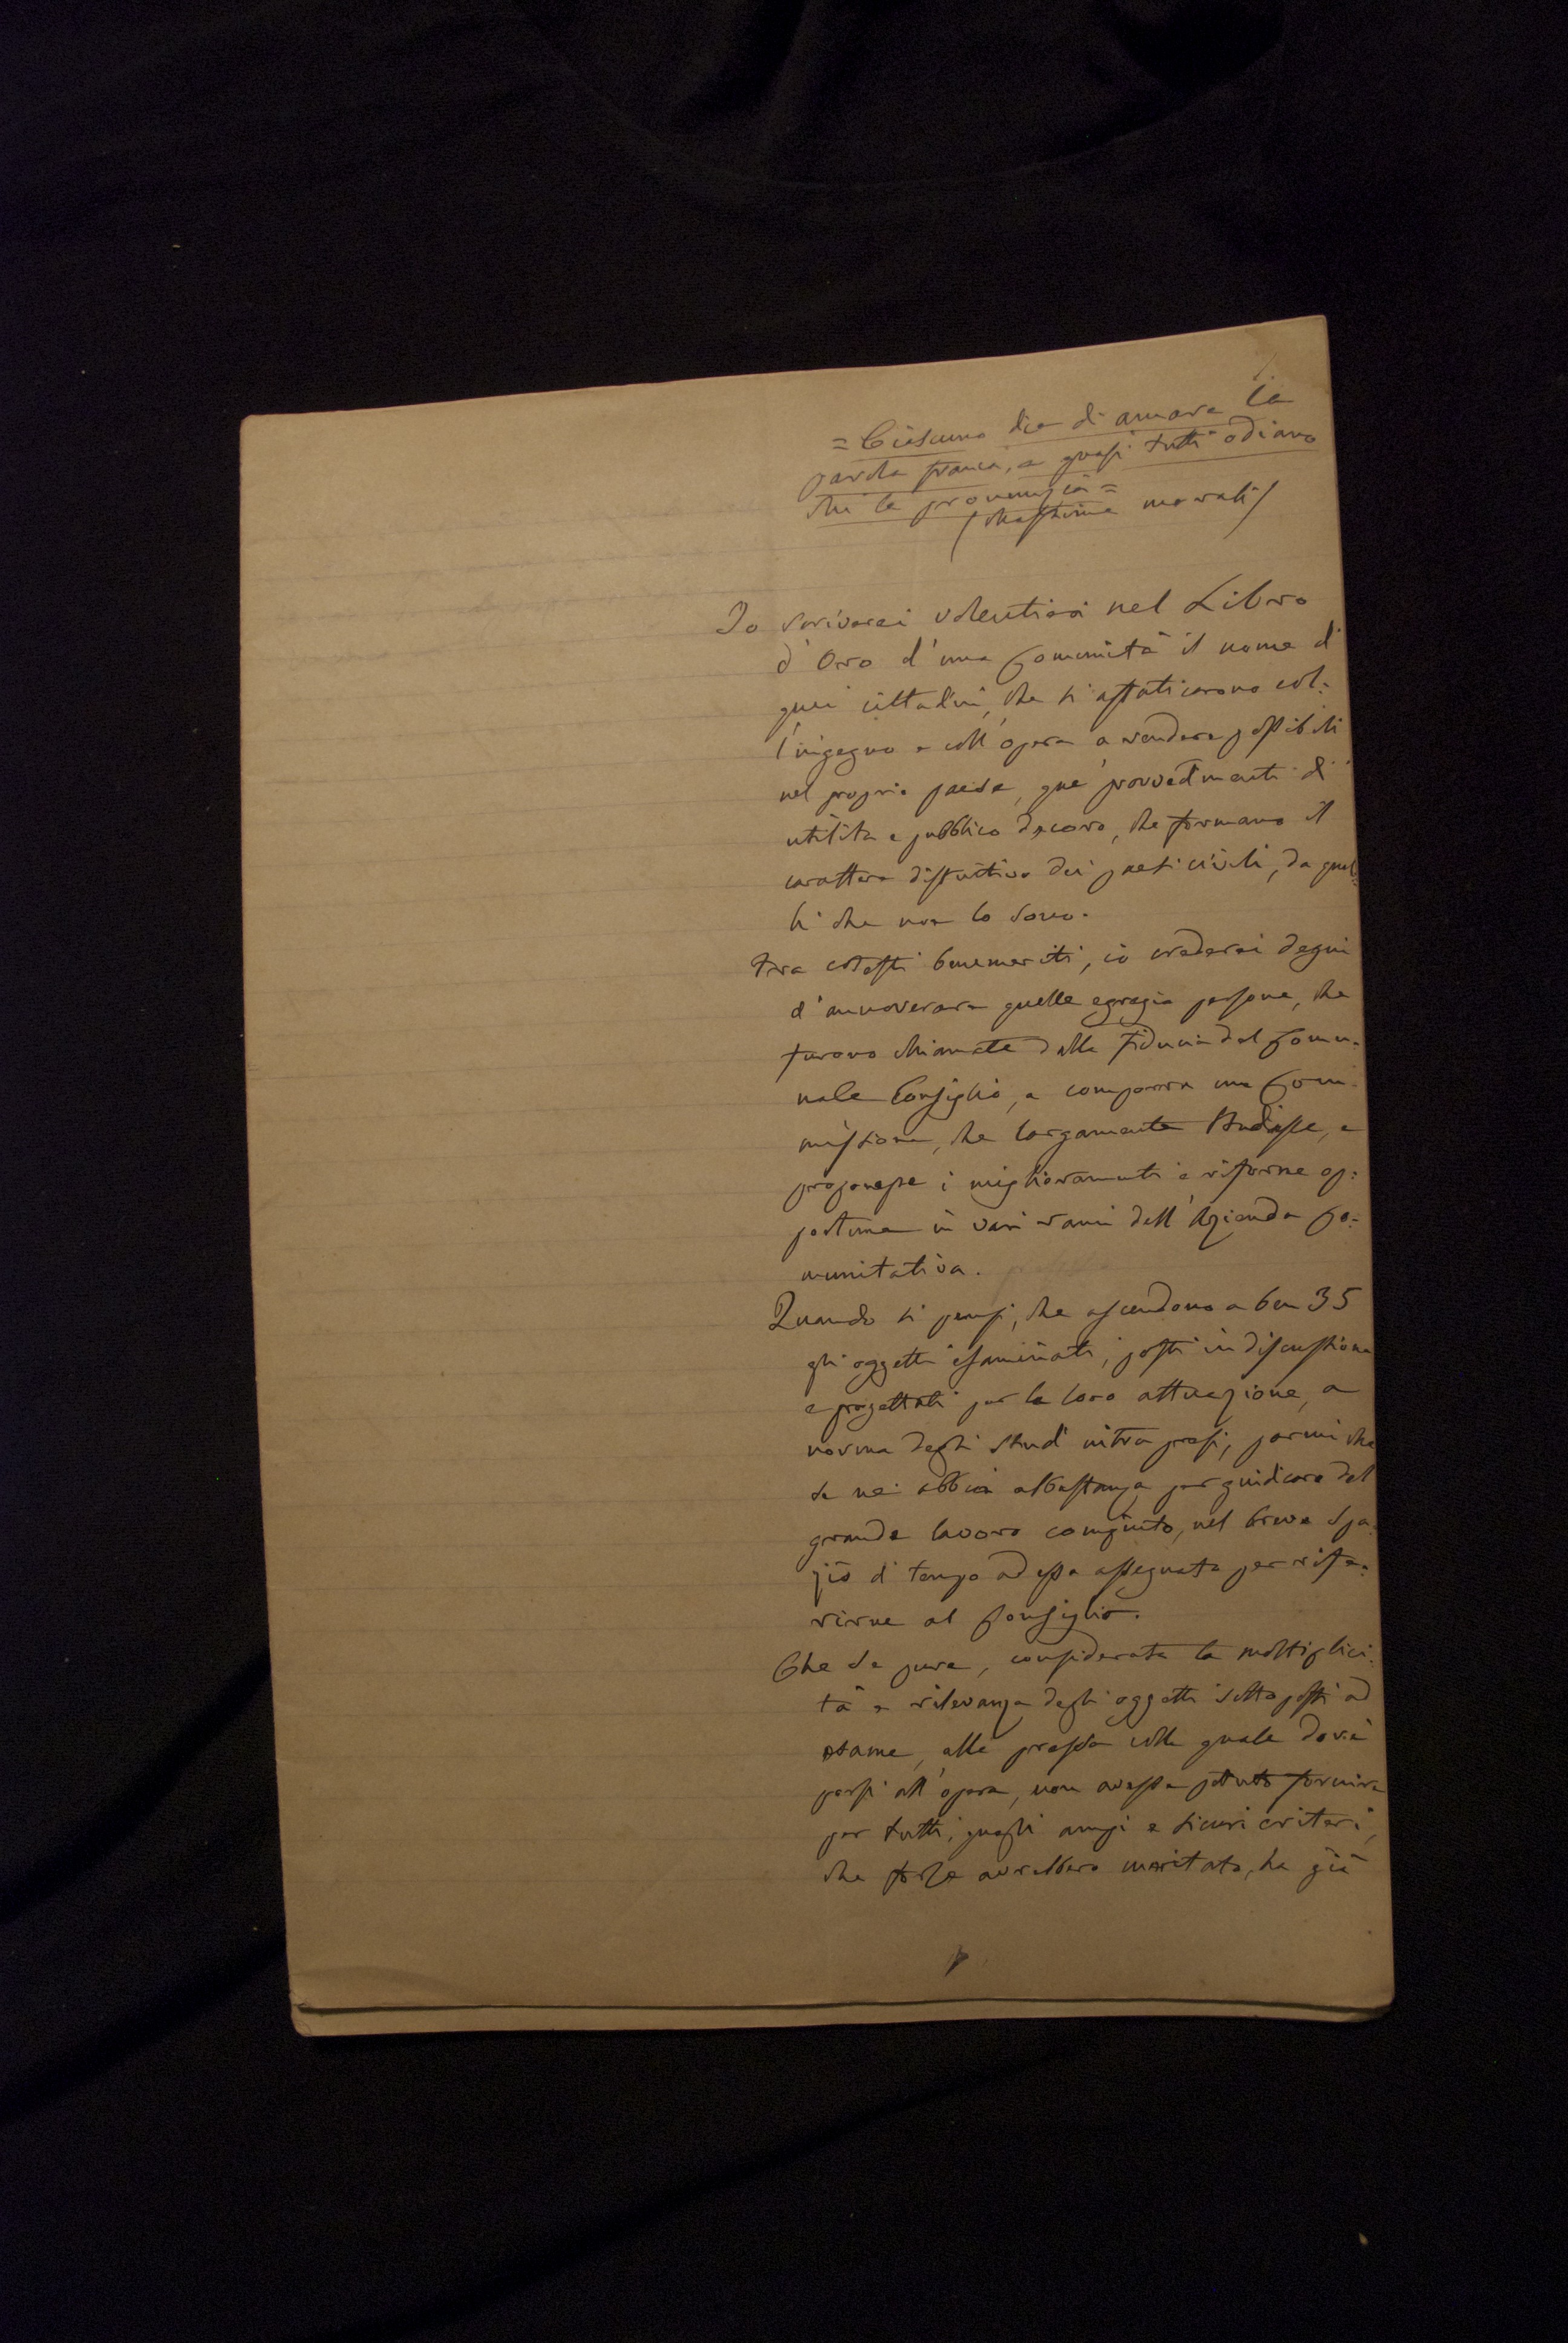 = Ciascuno dice di amare la
parola franca, e quasi tutti odiano
chi la pronunzia =
(Massime morali)
Io scriverei volentieri nel Libro
d'Oro d'una Comunità il nome di
quei cittadini, che si affaticarono col-
l'ingegno e coll'opera a rendere possibili
nel proprio paese, que' provvedimenti di
utilità e pubblico decoro, che formano il
carattere distintivo dei paesi civili, da quel-
li che non lo sono.
Tra cotesti benemeriti, io crederei degni
d'annoverare quelle egregie persone, che
furono chiamate dalla fiducia del Comu-
nale Consiglio, a comporre una Com-
missione, che largamente studiasse, e
proponesse i miglioramenti e riforme op-
portune in vari rami dell'Azienda Co-
munitativa.
Quando si pensi, che ascendono a ben 35
gli oggetti esaminati, posti in discussione
e progettati per la loro attuazione, a
norma degli studi intrapresi, parmi che
se ne abbia abbastanza per giudicare del
grande lavoro compiuto, nel breve spa-
zio di tempo ad essa assegnato per rife-
rirne al Consiglio.
Che se pure, considerata la moltiplici-
tà e rilevanza degli oggetti sottoposti ad
esame, alla pressa colla quale dovè
porsi all'opera, non avesse potuto fornire
per tutti, quegli ampi e sicuri criteri,
che forse avrebbero meritato, ha già